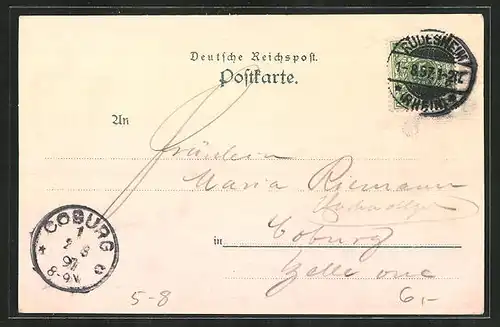 Deutsche Reichspost.
Postkarte.
RÜDESHEIM
1-8.97.1-2N.
* (RHEIN) *
An
Fräulein
Maria Riemann
in Coburg
COBURG
1
2 8
97
8-9V.
* a
5-8
6,-